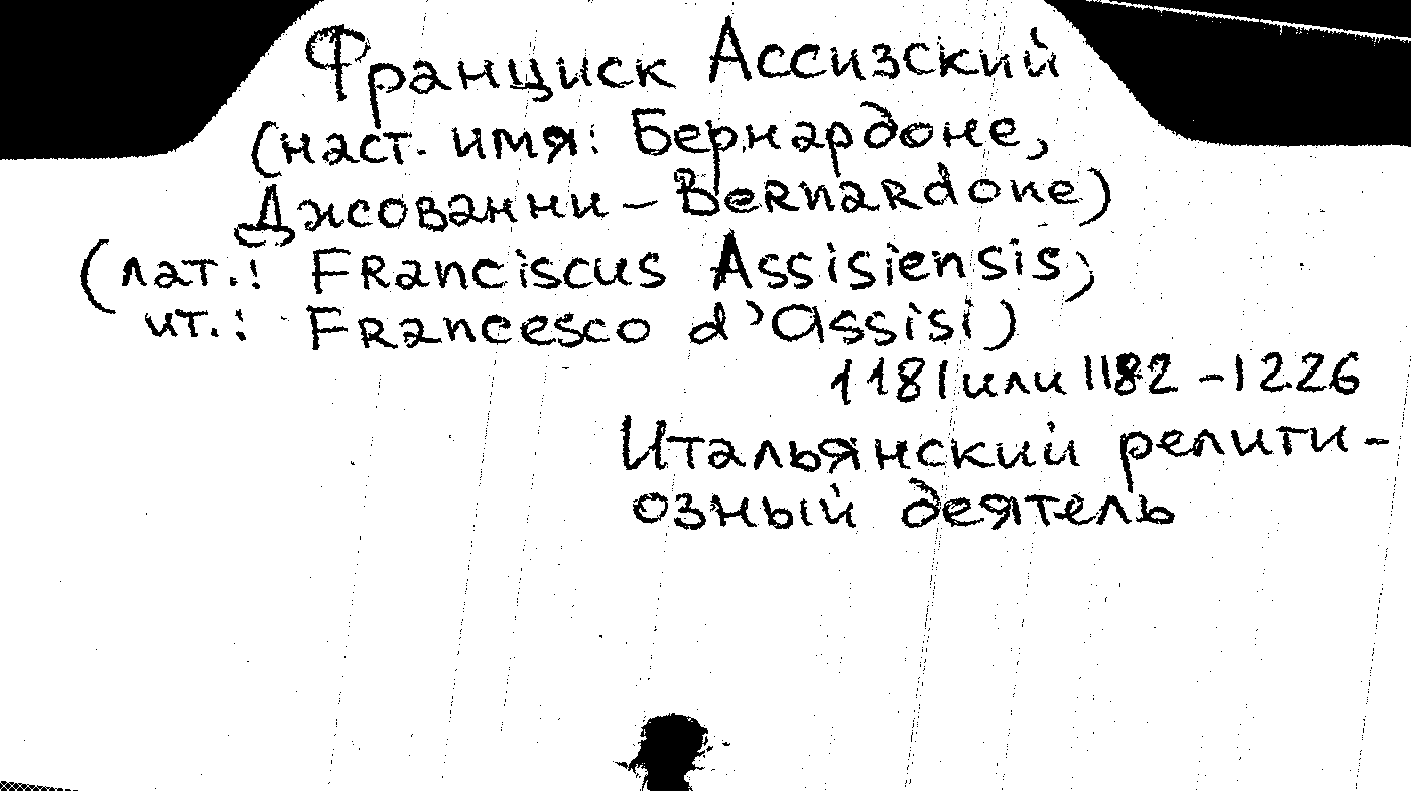 Франциск Ассизский
(наст. имя: Бернардоне,
Джованни – Bernardone)
(лат.: Franciscus Assisiensis,
ит.: Francesco d'Assisi)
1181 или 1182 – 1226
Итальянский религи-
озный деятель